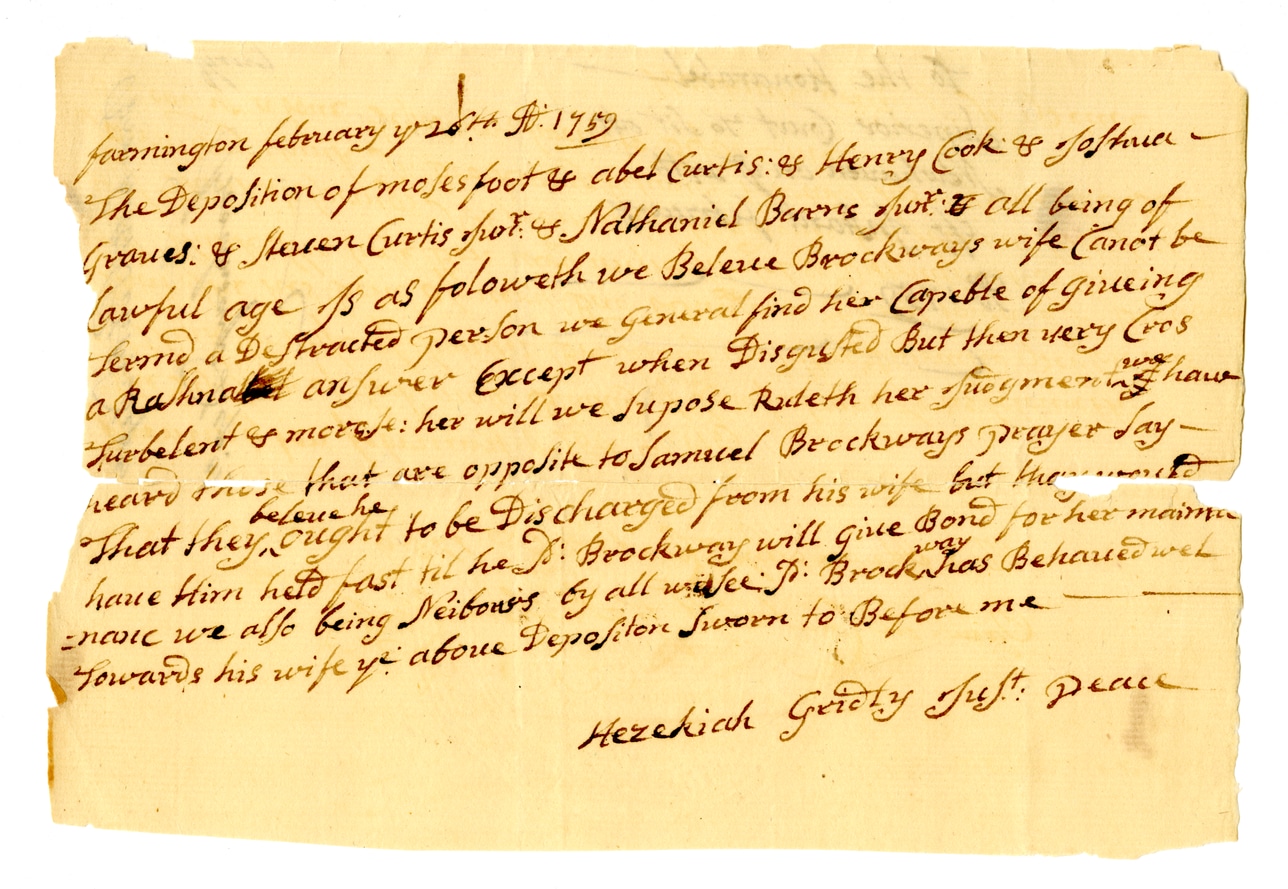 farmington february ye 26th AD: 1759
The Deposition of moses foot & abel Curtis: & Henry Cook & Joshua
Graves: & Steven Curtis Junr: & Nathaniel Barns Junr: & all being of
Lawful age Is as foloweth we Beleve Brockways wife Canot be
Termd a Destracted person we General find her Capeble of giveing
a Rashnabel answer Except when Disgusted But then very Cros
Turbelent & morose: her will we supose Ruleth her Judgment we have
heard those that are opposite to Samuel Brockways prayer say
That they beleve he ought to be Discharged from his wife but they would
have Him held fast til he sd: Brockway will give Bond for her mainta
=nanc we also being Neibours by all we see: sd: Brockway has Behaved wel
Towards his wife ye: above Depositon Sworn to Before me
Hezekiah Gridly Just: peace
To the Honorabel